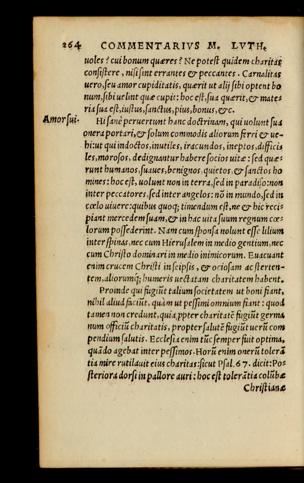 264 COMMENTARIVS M. LVTH.
uoles? cui bonum quæres? Ne potest quidem charitas
consistere, nisi sint errantes & peccantes. Carnalitas
uero, seu amor cupiditatis, quærit ut alij sibi optent bo
num, sibi uelint quæ cupit: hoc est, sua quærit, & mate=
ria sua est, iustus, sanctus, pius, bonus, &c.
Amor sui. Hi sanè peruertunt hanc doctrinam, qui uolunt sua
onera portari, & solum commodis aliorum ferri & ue=
hi: ut qui indoctos, inutiles, iracundos, ineptos, difficis
les, morosos, dedignantur habere socios uitæ: sed quæ=
runt humanos, suaues, benignos, quietos, & sanctos ho
mines: hoc est, uolunt non in terra, sed in paradiso: non
inter peccatores, sed inter angelos: nō in mundo, sed in
cœlo uiuere: quibus quoq; timendum est, ne & hic reci=
piant mercedem suam, & in hac uita suum regnum cœ=
lorum possederint. Nam cum sponsa nolunt esse lilium
inter spinas, nec cum Hierusalem in medio gentium, nec
cum Christo dominari in medio inimicorum. Euacuant
enim crucem Christi in seipsis, & ociosam ac sterten=
tem, aliorumq; humeris uectatam charitatem habent.
Proinde qui fugiūt talium societatem ut boni fiant,
nihil aliud faciūt, quàm ut pessimi omnium fiant: quod
tamen non credunt, quia ꝓpter charitatē fugiūt germa
num officiū charitatis, propter salutē fugiūt uerū com
pendium salutis. Ecclesia enim tūc semper fuit optima,
quādo agebat inter pessimos. Horū enim onerū tolerā
tia mire rutilauit eius charitas: sicut Psal. 67. dicit: Po=
steriora dorsi in pallore auri: hoc est tolerātia colūbæ
Christianæ